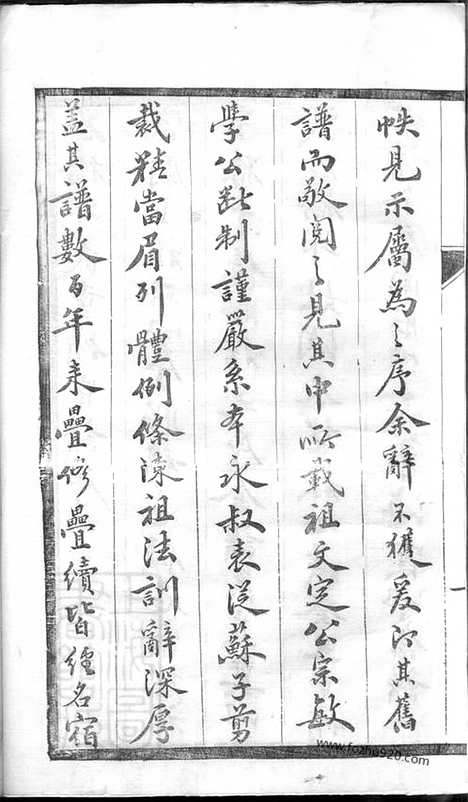 帙見示屬為之序余辭不獲爰即其舊
譜而敬閱之見其中所載祖文定公宗敏
學公裁制謹嚴系本永叔表從蘇子剪
裁精當眉列體例條陳祖法訓辭深厚
蓋其譜數百年來疊修疊續皆經名宿
www.fozhu920.com